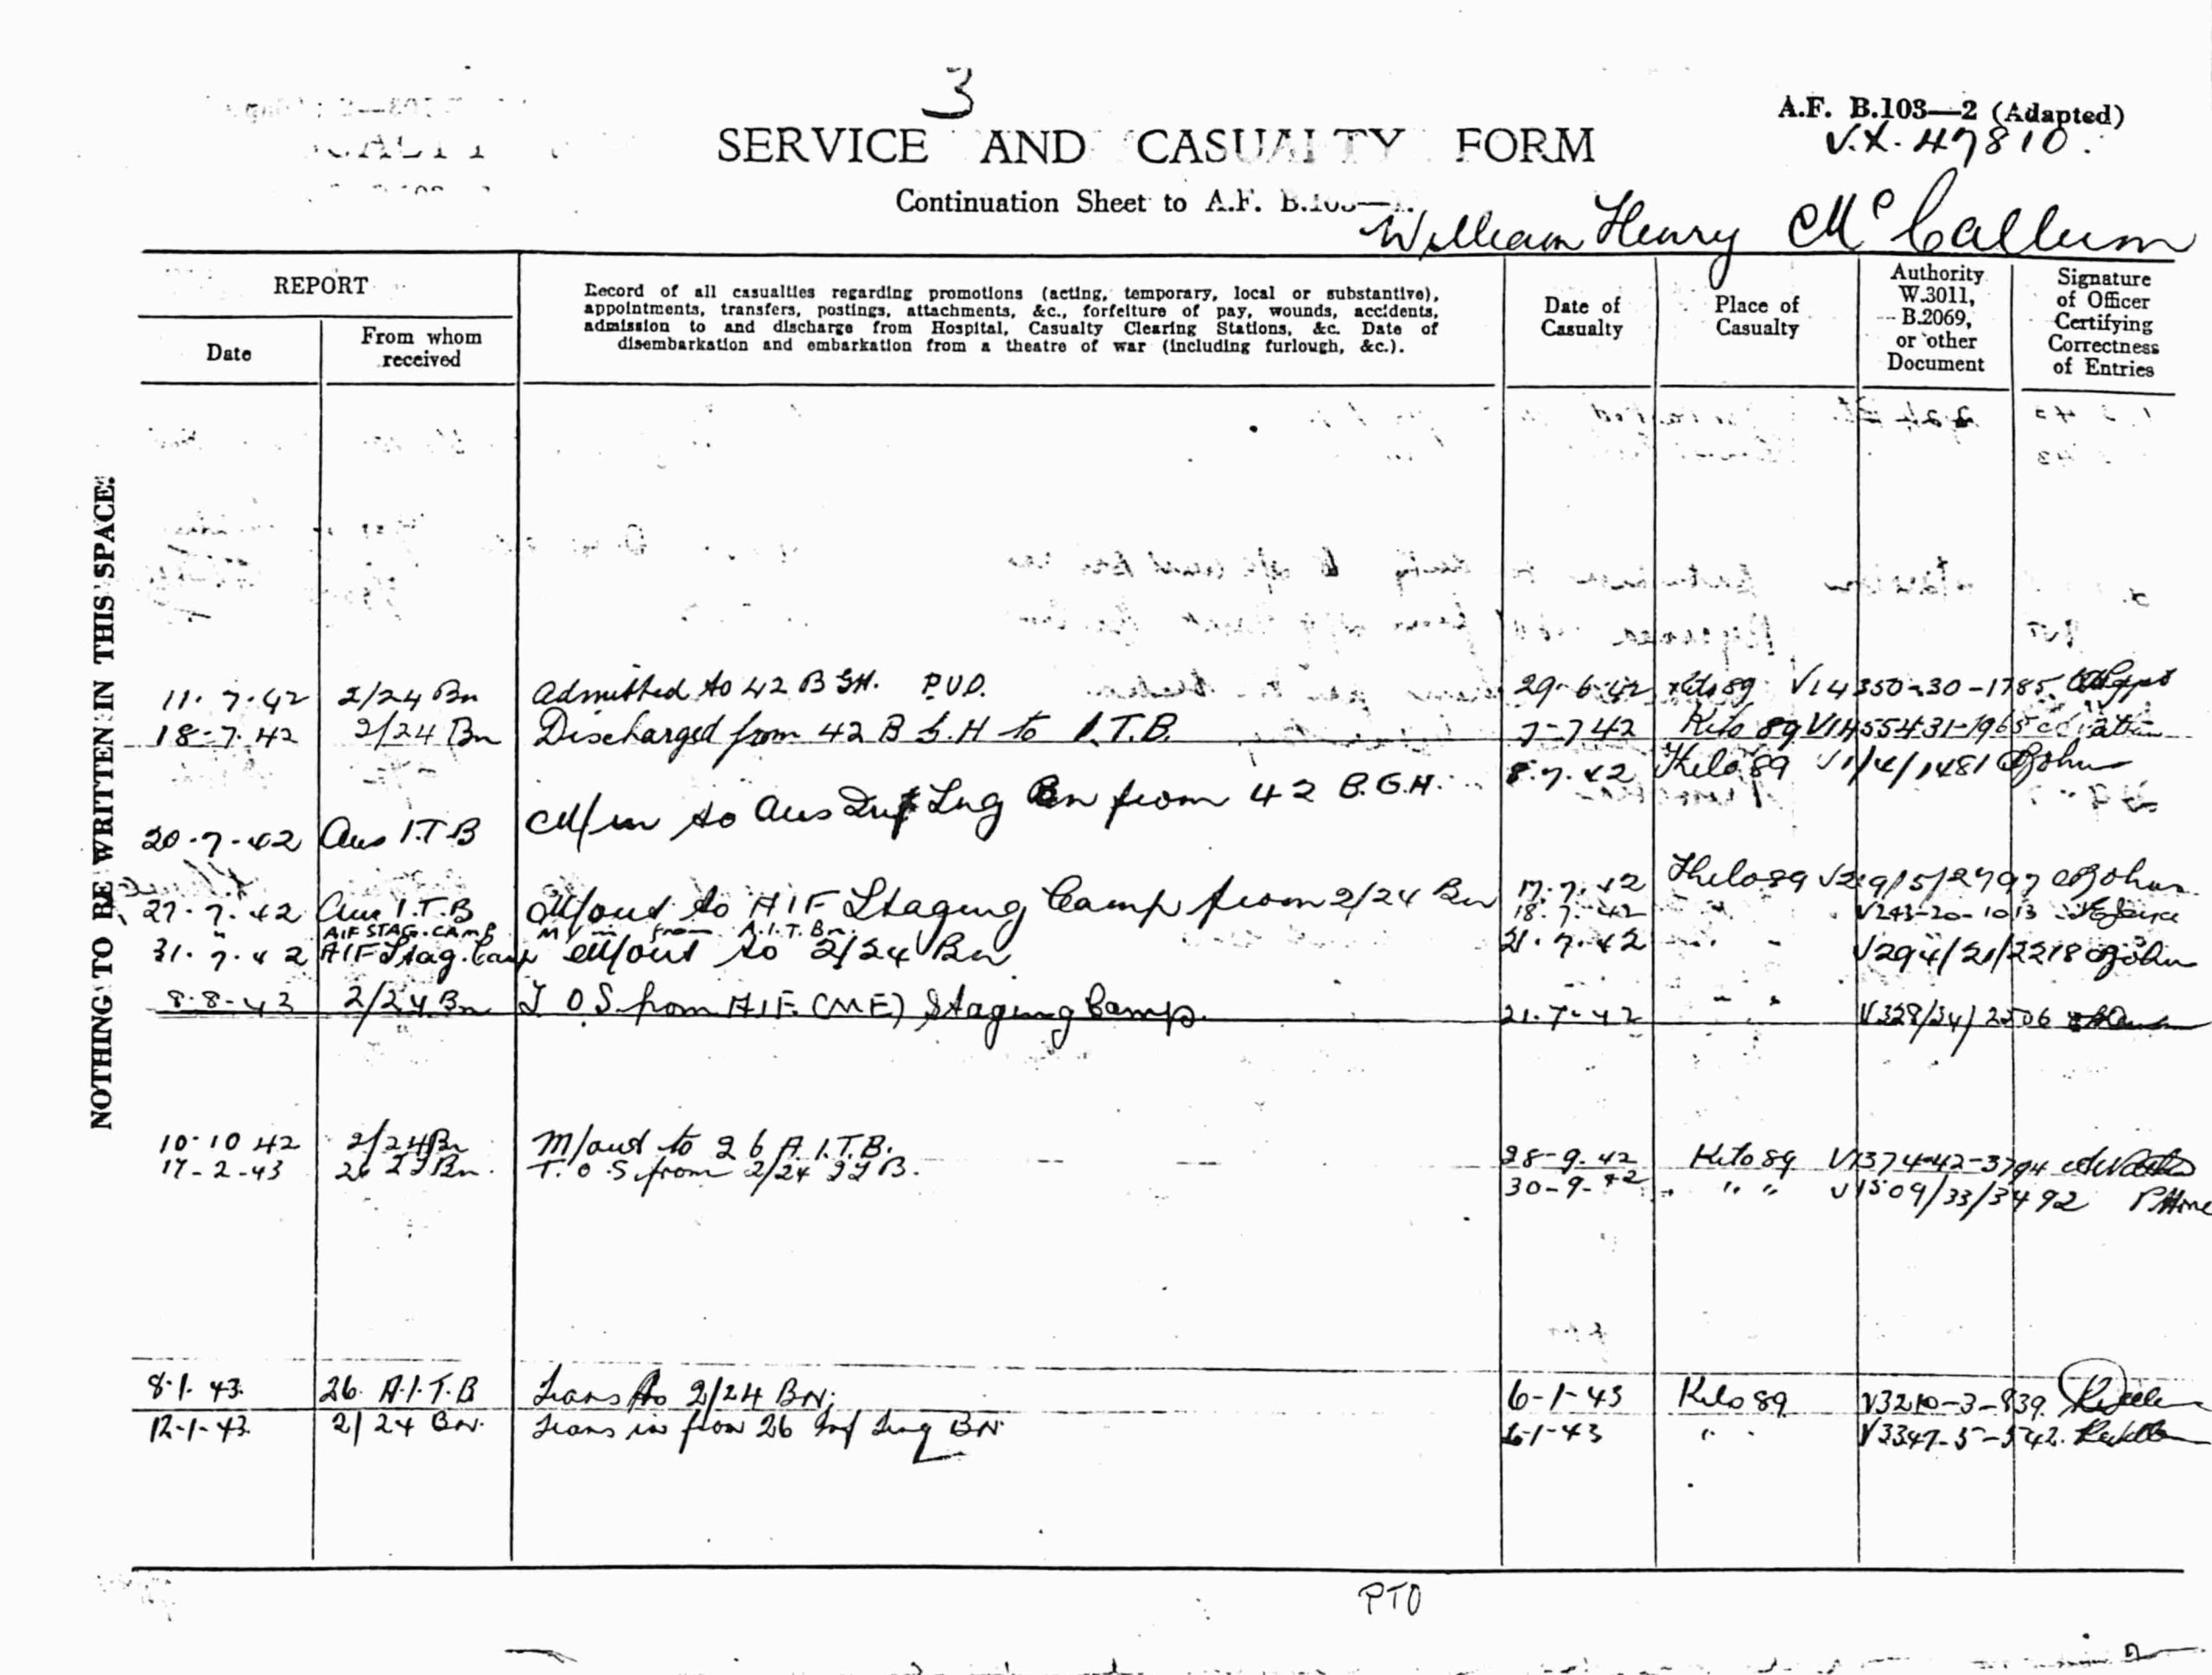 3
A.F. B.103—2 (Adapted)
V.X. 47810.
SERVICE AND CASUALTY FORM
Continuation Sheet to A.F. B.103—
William Henry McCallum
NOTHING TO BE WRITTEN IN THIS SPACE.
REPORT
Date
From whom received
Record of all casualties regarding promotions (acting, temporary, local or substantive),
appointments, transfers, postings, attachments, &c., forfeiture of pay, wounds, accidents,
admission to and discharge from Hospital, Casualty Clearing Stations, &c. Date of
disembarkation and embarkation from a theatre of war (including furlough, &c.).
Date of Casualty
Place of Casualty
Authority W.3011, B.2069, or other Document
Signature of Officer Certifying Correctness of Entries
11. 7. 42 2/24 Bn Admitted to 42 B GH. P.U.O. 29-6-42 Kilo 89 V14350-30-1785
18-7.42 2/24 Bn Discharged from 42 B G.H to I.T.B. 7-7 42 Kilo 89 V1455431-1965
20-7-42 Aus I.T.B M/in to Aus Inf Tng Bn from 42 B.G.H. 8.7.42 Kilo 89 V1/4/1481 John
27.7.42 Aus I.T.B M/out to AIF Staging Camp from 2/24 Bn 17.7.42 Kilo 89 V219/5/2797 John
" AIF STAG. CAMP M/in from A.I.T.Bn. 18.7.42 " V243-20-1013
31.7.42 AIF Stag. Camp M/out to 2/24 Bn 21.7.42 " V294/21/2218 John
8.8-43 2/24 Bn T O S from A.I.F. (M E) Staging Camp. 21.7-42 " " V328/34/2506
10-10 42 2/24 Bn M/out to 26 A.I.T.B. 28-9.42 Kilo 89 V1374-42-3794
17-2-43 26 Bn. T.O.S from 2/24 B. 30-9-42 " " V1509/33/3492
8.1.43. 26. A.I.T.B Trans to 2/24 BN. 6-1-43 Kilo 89 V3210-3-839
12-1-43. 2/24 BN. Trans in from 26 Inf Tng BN 6-1-43 " V3347-5-542.
PTO